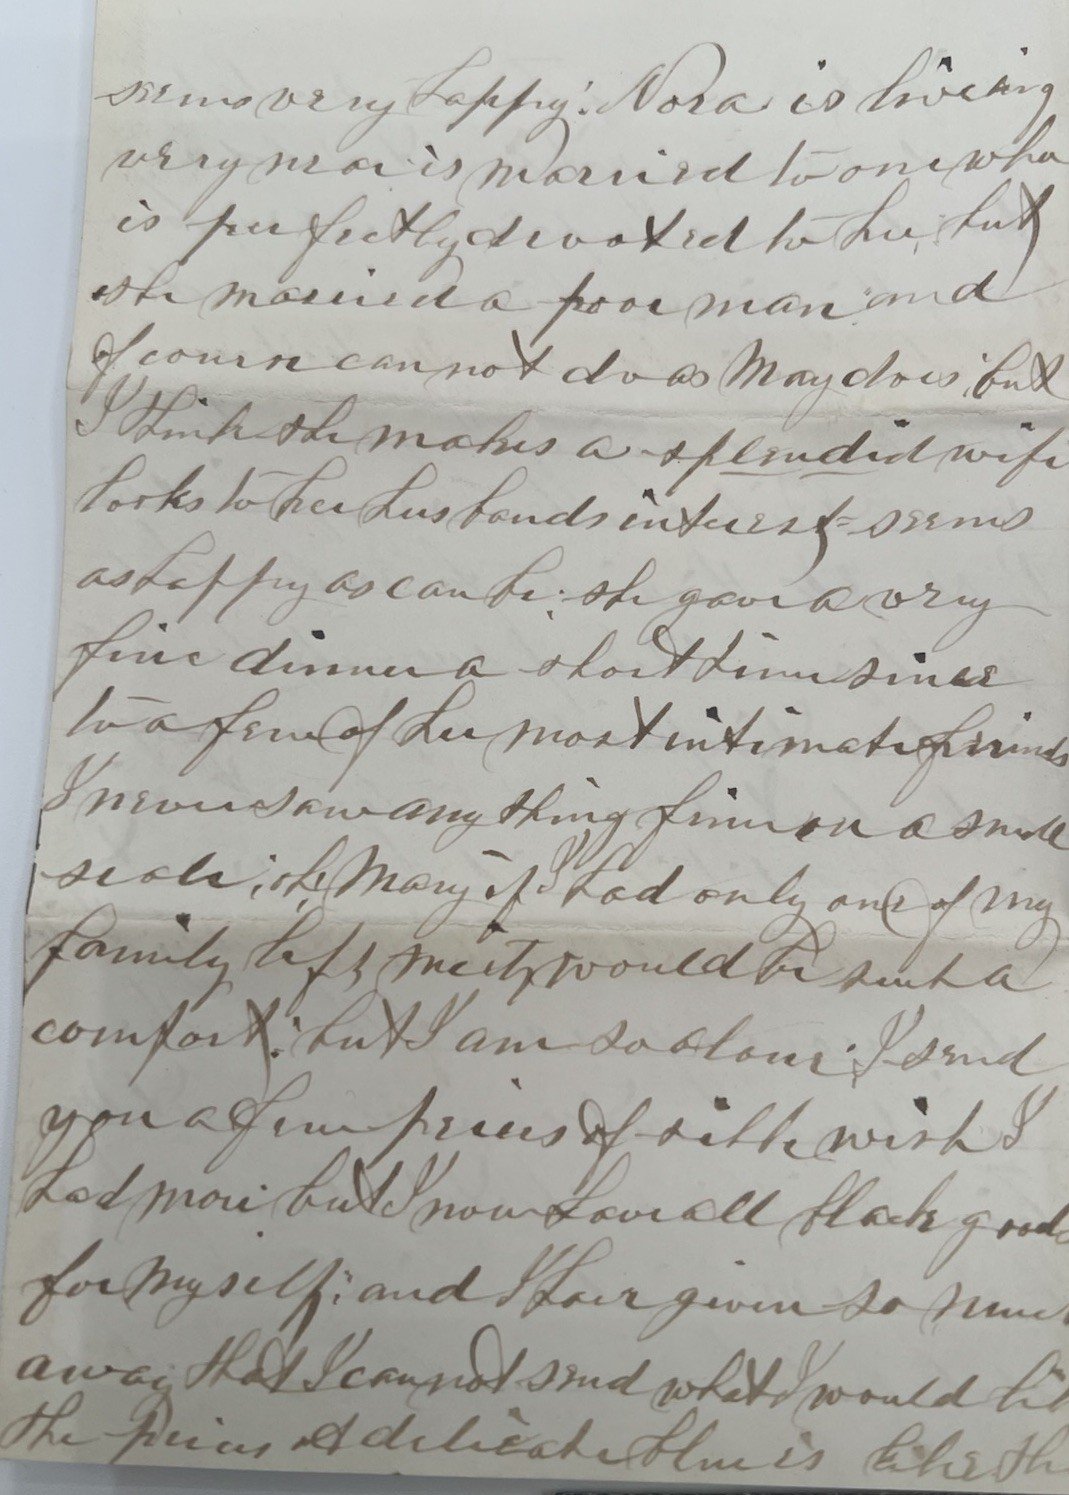 seems very happy: Nora is living
very near is married to one who
is perfectly devoted to her, but
she married a poor man and
of course can not do as May does, but
I think she makes a splendid wife
looks to her husbands interest = seems
as happy as can be: she gave a very
fine dinner a short time since
to a few of her most intimate friends
I never saw any thing finer on a small
scale; oh, Mary if I had only one of my
family left, would be such a
comfort: but I am so alone: I send
you a few pieces of silk wish I
had more but I now have all black goods
for myself: and I have given so much
away that I can not send what I would lik
the pieces delicate blue is like th